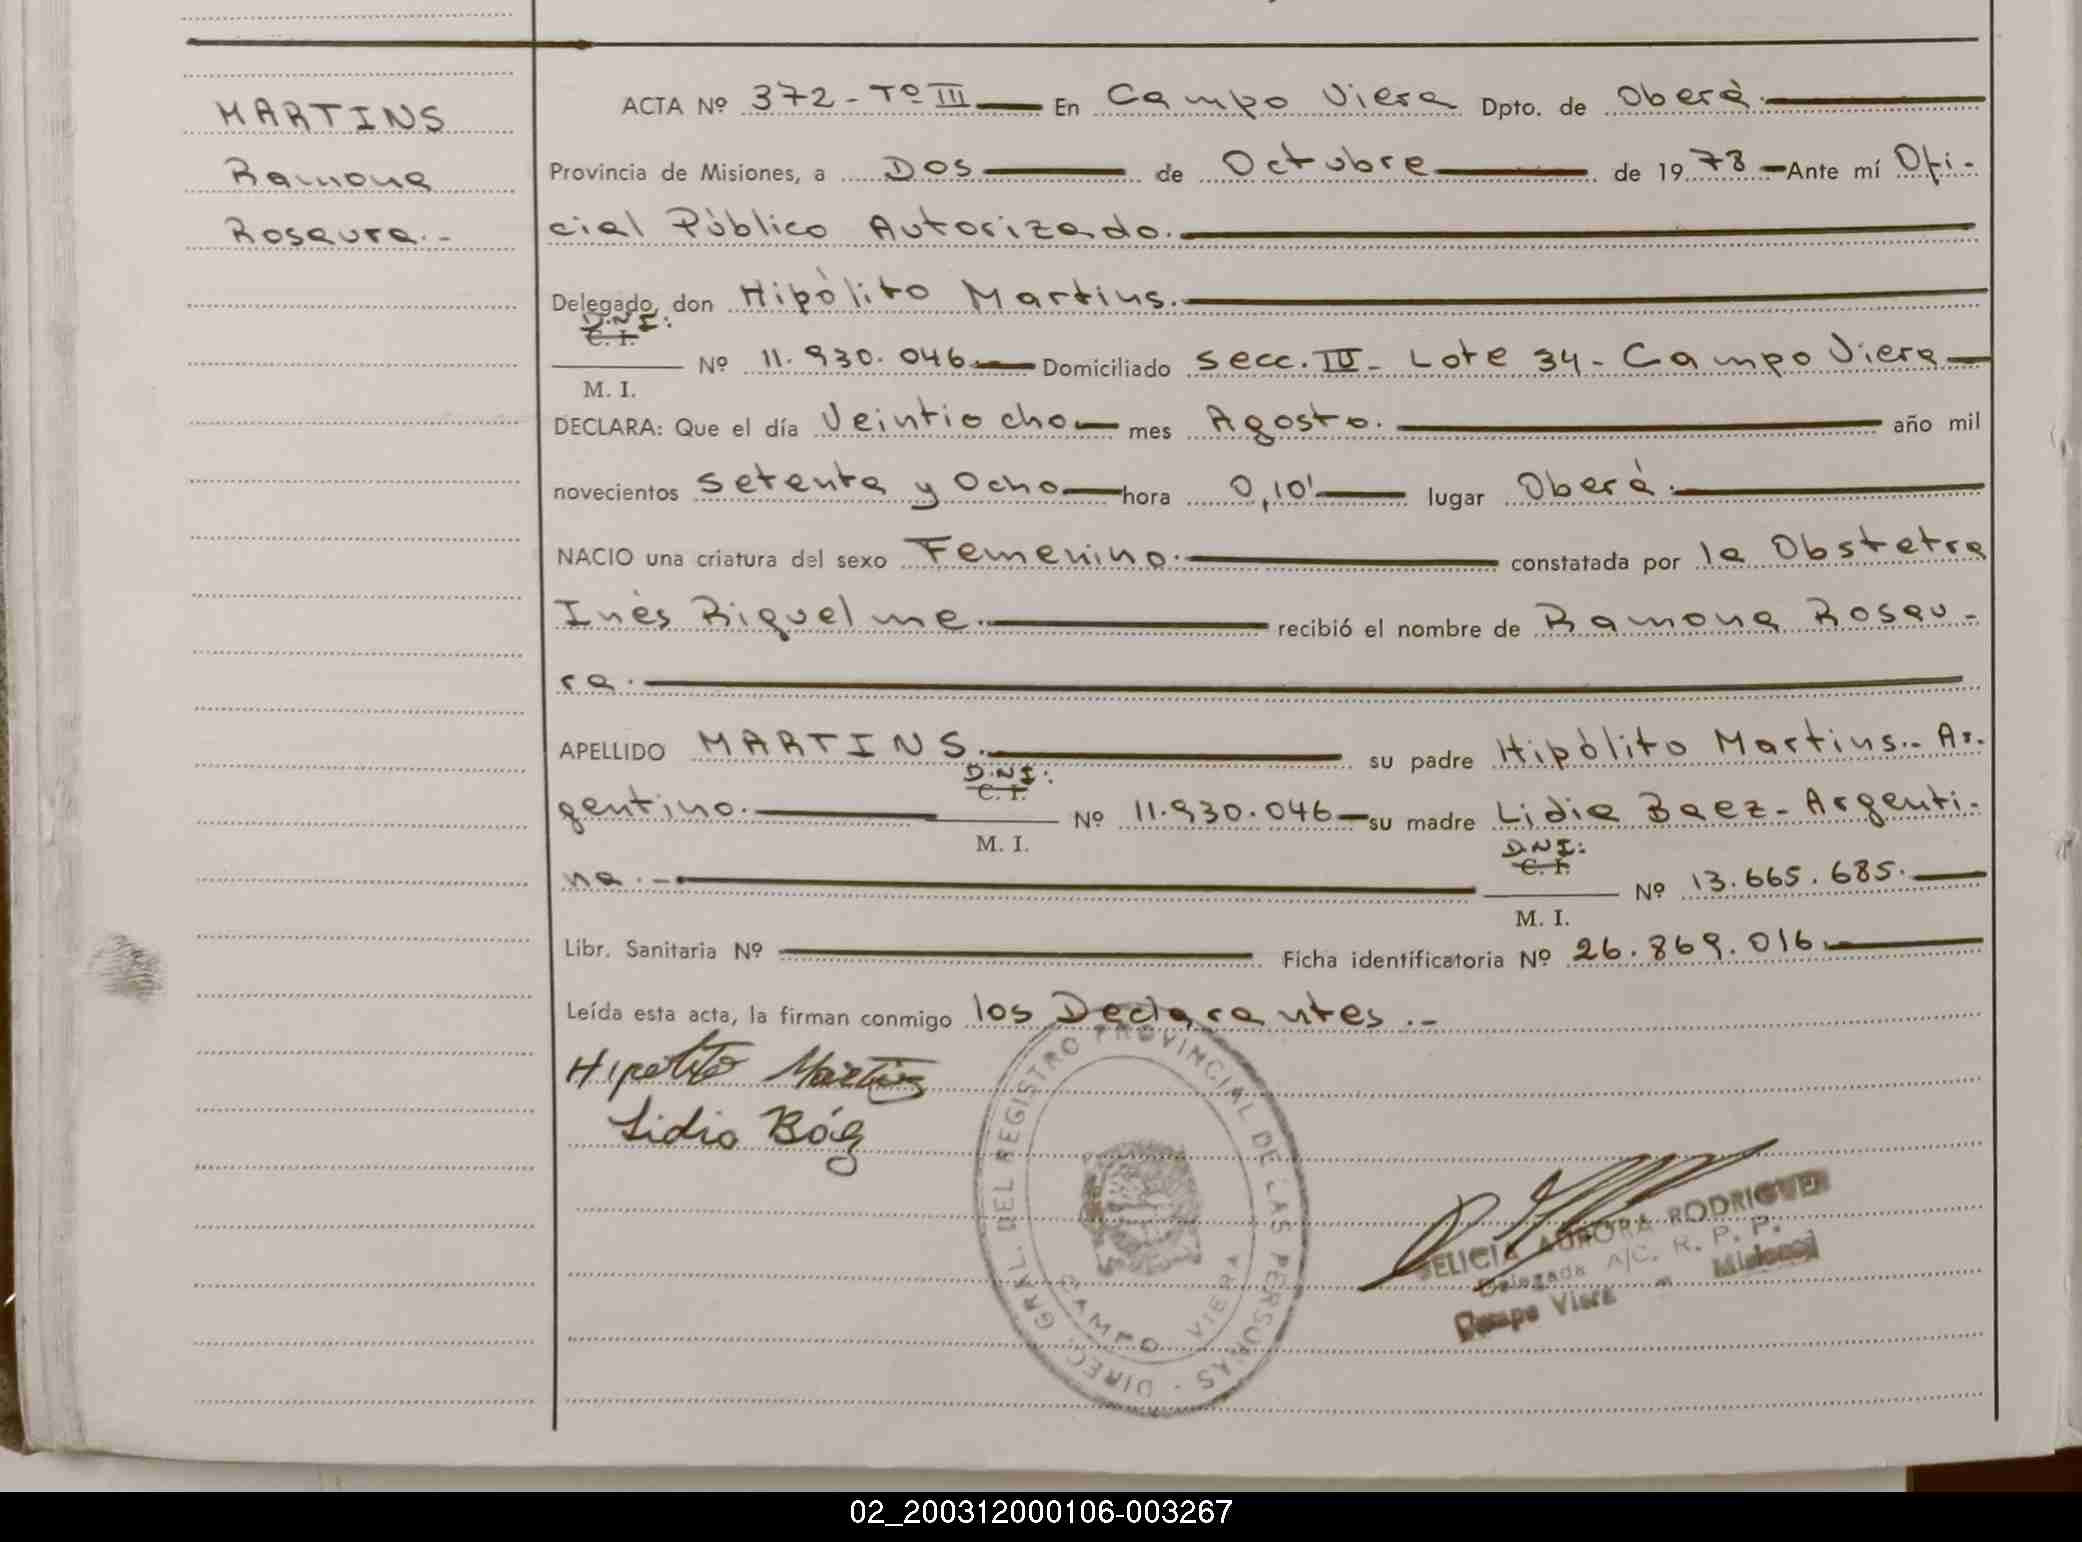 MARTINS
Ramona
Rosaura.-
ACTA Nº 372 - Tº III En Campo Viera Dpto. de Oberá.
Provincia de Misiones, a Dos de Octubre de 1978 Ante mí Ofi-
cial Público Autorizado.
Delegado, don Hipólito Martins.
D.N.I:
C. I.
M. I.
Nº 11.930.046 Domiciliado Secc. IV - Lote 34 - Campo Viera
DECLARA: Que el día Veintiocho mes Agosto. año mil
novecientos Setenta y Ocho hora 0,10' lugar Oberá.
NACIO una criatura del sexo Femenino. constatada por la Obstetra
Inés Riquelme. recibió el nombre de Ramona Rosau-
ra.
APELLIDO MARTINS. su padre Hipólito Martins.- Ar-
D.N.I:
C. I.
gentino. M. I. Nº 11.930.046 su madre Lidia Baez - Argenti-
D.N.I:
C. I.
na.- M. I. Nº 13.665.685.
Libr. Sanitaria Nº Ficha identificatoria Nº 26.869.016.
Leída esta acta, la firman conmigo los Declarantes.-
Hipolito Martins
Lidia Báez
DIREC. GRAL. DEL REGISTRO PROVINCIAL DE LAS PERSONAS
CAMPO VIERA
FELICIA AURORA RODRIGUEZ
Delegada A/C. R. P. P.
Campo Viera - Misiones
02_200312000106-003267